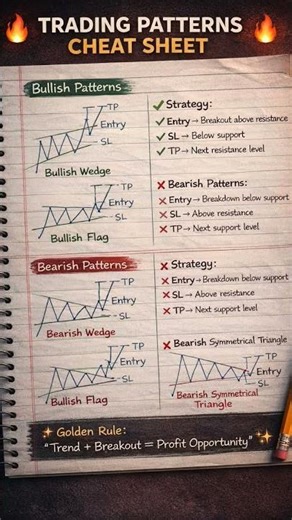 🔥 TRADING PATTERNS 🔥
CHEAT SHEET
Bullish Patterns
TP
Entry
SL
Bullish Wedge
✓ Strategy:
✓ Entry → Breakout above resistance
✓ SL → Below support
✓ TP → Next resistance level
TP
Entry
SL
Bullish Flag
✗ Bearish Patterns:
✗ Entry → Breakdown below support
✗ SL → Above resistance
✗ TP → Next support level
Bearish Patterns
TP
Entry
SL
Bearish Wedge
✗ Strategy:
✗ Entry → Breakdown below support
✗ SL → Above resistance
✗ TP → Next support level
TP
Entry
SL
Bullish Flag
✗ Bearish Symmetrical Triangle
TP
Entry
SL
Bearish Symmetrical
Triangle
✨ Golden Rule: ✨
"Trend + Breakout = Profit Opportunity"